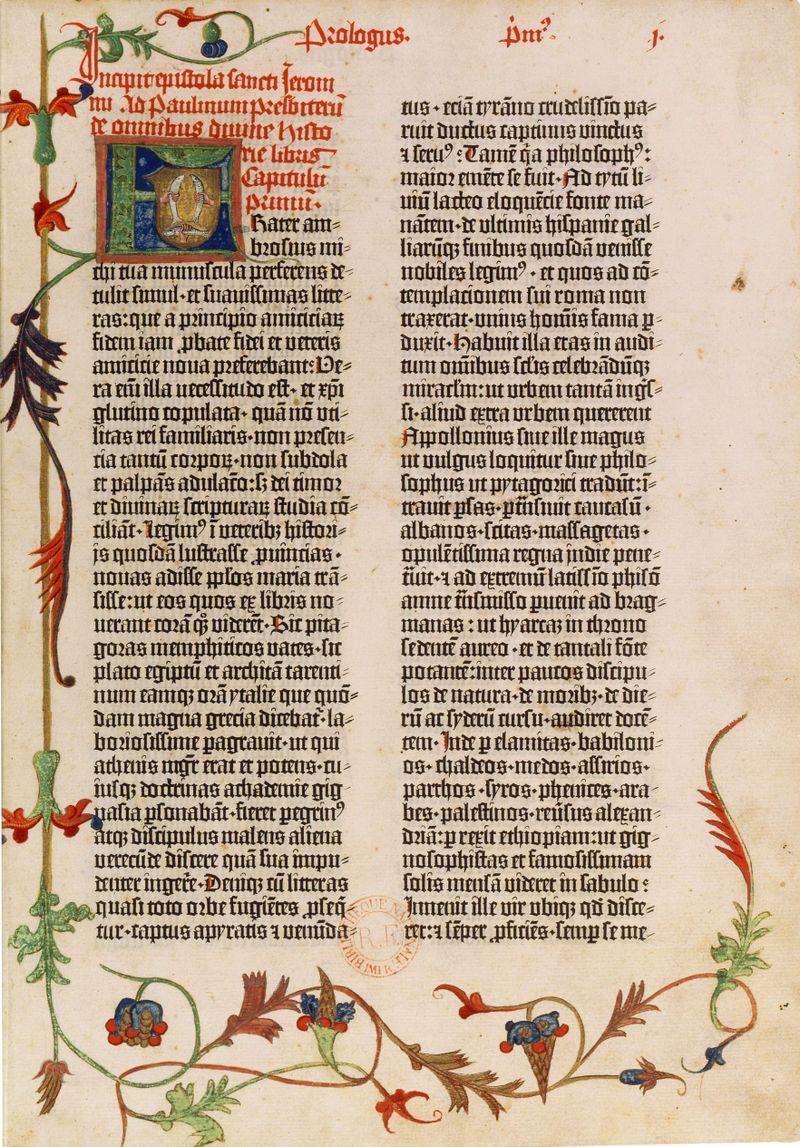 Prologus. pm⁹. j.
Incipit epistola sancti Ieroni
mi Ad Paulinum presbiterū
de omnibus divine histo
rie libris
Capitulū
primū.
Frater am⸗
brosius mi⸗
chi tua munuscula perferens de⸗
tulit simul · et suavissimas litte⸗
ras: que a principio amiciciaꝝ
fidem iam ꝓbate fidei et veteris
amicicie nova preferebant: Ve⸗
ra em̄ illa necessitudo est · et xp̄i
glutino copulata · quā nō uti⸗
litas rei familiaris · non presen⸗
cia tantū corpoꝝ · non subdola
et palpās adulaco: sꝫ dei timor
et divinaꝝ scripturaꝝ studia cō⸗
ciliāt · Legim⁹ ī veteribꝫ histori⸗
js quosdā lustrasse ꝓvincias ·
novas adisse pplos maria trā⸗
sisse: ut eos quos ex libris no⸗
verant corā qꝫ viderēt · Sic pita⸗
goras memphiticos vates · sic
plato egiptū et architā tarenti⸗
num eamqꝫ orā ytalie que quō⸗
dam magna grecia dicebat · la⸗
boriosissime ꝑagravit · ut qui
athenis mgr̄ erat et potens · cu⸗
iusqꝫ doctrinas achademie gig
nasia ꝑsonabāt · fieret ꝑegrin⁹
atqꝫ discipulus malens aliena
verecūde discere quā sua impu⸗
denter inger̄e · Deniqꝫ cū litteras
quasi toto orbe fugiētes ꝑseq̄⸗
tur · captus a pyratis ⁊ venūda⸗
tus · eciā tyrāno crudelissīo pa⸗
ruit ductus captivus vinctus
⁊ serv⁹: Tamē qa philosoph⁹:
maior emēte se fuit · Ad tytū li⸗
viū lacteo eloquēcie fonte ma⸗
nātem · de ultimis hispanie gal⸗
liarūqꝫ finibus quosdā venisse
nobiles legim⁹ · et quos ad cō⸗
templacionem sui roma non
traxerat · unius homīs fama ꝑ
duxit · Habuit illa etas inaudi⸗
tum om̄ibus sc̄lis celebrādūqꝫ
miraclm: ut urbem tantā inḡs⸗
si · aliud extra urbem quererent
Appollonius sive ille magus
ut vulgus loquitur sive philo⸗
sophus ut pytagorici tradūt: ī⸗
travit ꝑsas · ꝑt̄nsivit caucasū ·
albanos · scitas · massagetas ·
opulētissima regna indie pene⸗
t̄vit · ⁊ ad extremū latissīo phisō
amne t̄nsmisso ꝑvenit ad brag⸗
manas: ut hyarcaꝫ in throno
sedentē aureo · et de tantali fōte
potantē: inter paucos discipu⸗
los de natura · de moribꝫ · de die⸗
rū ac syderū cursu · audiret docē⸗
tem · Inde ꝑ elamitas · babiloni⸗
os · chaldeos · medos · assirios ·
parthos · syros · phenices · ara⸗
bes · palestinos · rev̄sus alexan⸗
driā: ꝑrexit ethiopiam: ut gig⸗
nosophistas et famosissimam
solis mensā videret in sabulo:
Invenit ille vir ubiqꝫ qd̄ disce⸗
ret: ⁊ sēper ꝓficiēs · semp se me⸗
R.F.